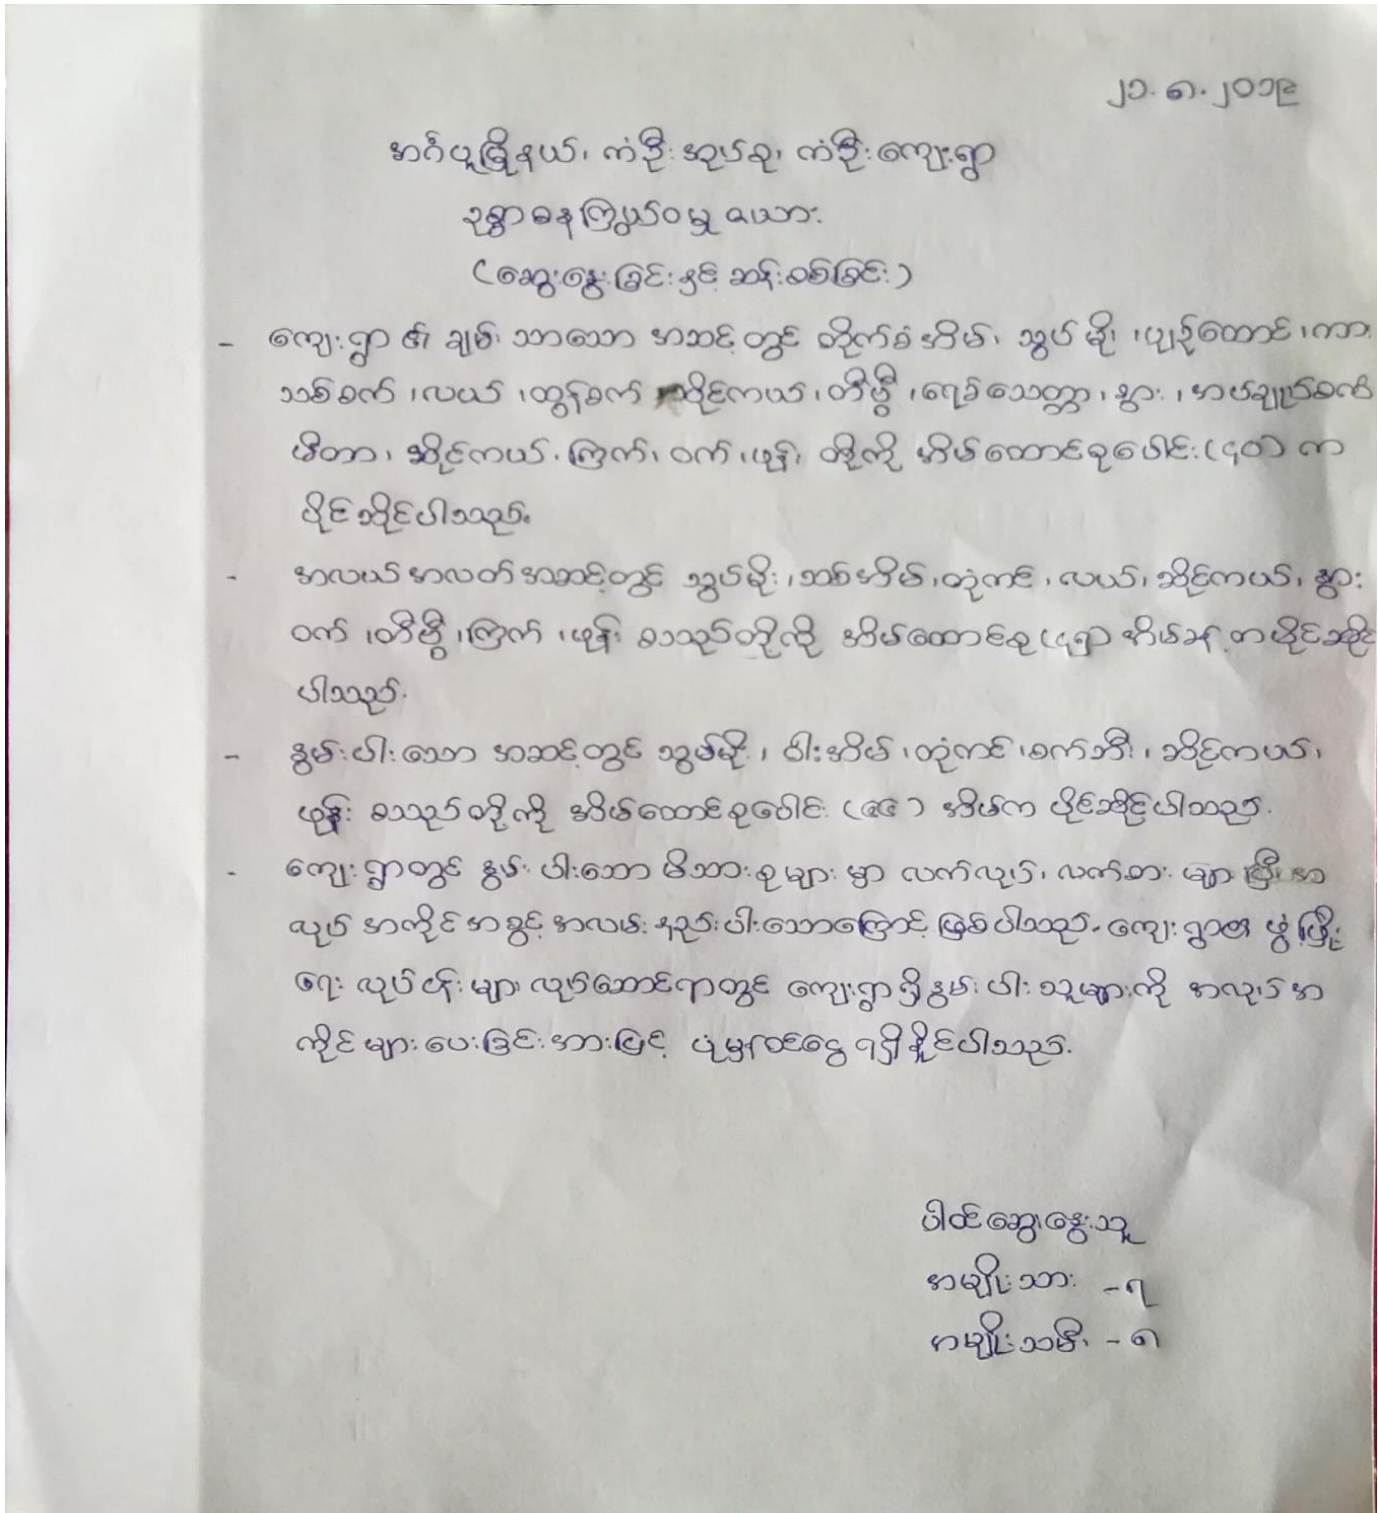 ၂၁.၈.၂၀၁၉
အင်္ဂပူမြို့နယ်၊ ကံဦးအုပ်စု၊ ကံဦးကျေးရွာ
ဥစ္စာဓနကြွယ်ဝမှုဇယား
(ဆွေးနွေးခြင်းနှင့် ဆန်းစစ်ခြင်း)
- ကျေးရွာ၏ ချမ်းသာသော အဆင့်တွင် တိုက်ခံအိမ်၊ သွပ်မိုး၊ ပျဉ်ထောင်၊ ကား
သစ်စက်၊ လယ်၊ ထွန်စက် ဆိုင်ကယ်၊ တီဗွီ၊ ရေခဲသေတ္တာ၊ နွား၊ အပ်ချုပ်စက်
မီတာ၊ ဆိုင်ကယ်၊ ကြက်၊ ဝက်၊ ဖုန်း တို့ကို အိမ်ထောင်စုပေါင်း (၄၀) က
ပိုင်ဆိုင်ပါသည်။
- အလယ်အလတ်အဆင့်တွင် သွပ်မိုး၊ သစ်အိမ်၊ တုံကင်၊ လယ်၊ ဆိုင်ကယ်၊ နွား
ဝက်၊ တီဗွီ၊ ကြက်၊ ဖုန်း စသည်တို့ကို အိမ်ထောင်စု (၄၅) အိမ်ခန့်က ပိုင်ဆိုင်
ပါသည်.
- နွမ်းပါးသော အဆင့်တွင် သွပ်မိုး၊ ဝါးအိမ်၊ တုံကင်၊ စက်ဘီး၊ ဆိုင်ကယ်၊
ဖုန်း စသည်တို့ကို အိမ်ထောင်စုပေါင်း (၉၄) အိမ်က ပိုင်ဆိုင်ပါသည်.
- ကျေးရွာတွင် နွမ်းပါးသော မိသားစုများမှာ လက်လုပ်၊ လက်စား များပြီးအ
လုပ်အကိုင်အခွင့်အလမ်းနည်းပါးသောကြောင့် ဖြစ်ပါသည်. ကျေးရွာ၏ ဖွံ့ဖြိုး
ရေး လုပ်ငန်းများ လုပ်ဆောင်ရာတွင် ကျေးရွာရှိနွမ်းပါးသူများကို အလုပ်အ
ကိုင်များပေးခြင်းအားဖြင့် ပုံမှန်ဝင်ငွေ ရရှိနိုင်ပါသည်.
ပါဝင်ဆွေးနွေးသူ
အမျိုးသား - ၇
အမျိုးသမီး - ၈